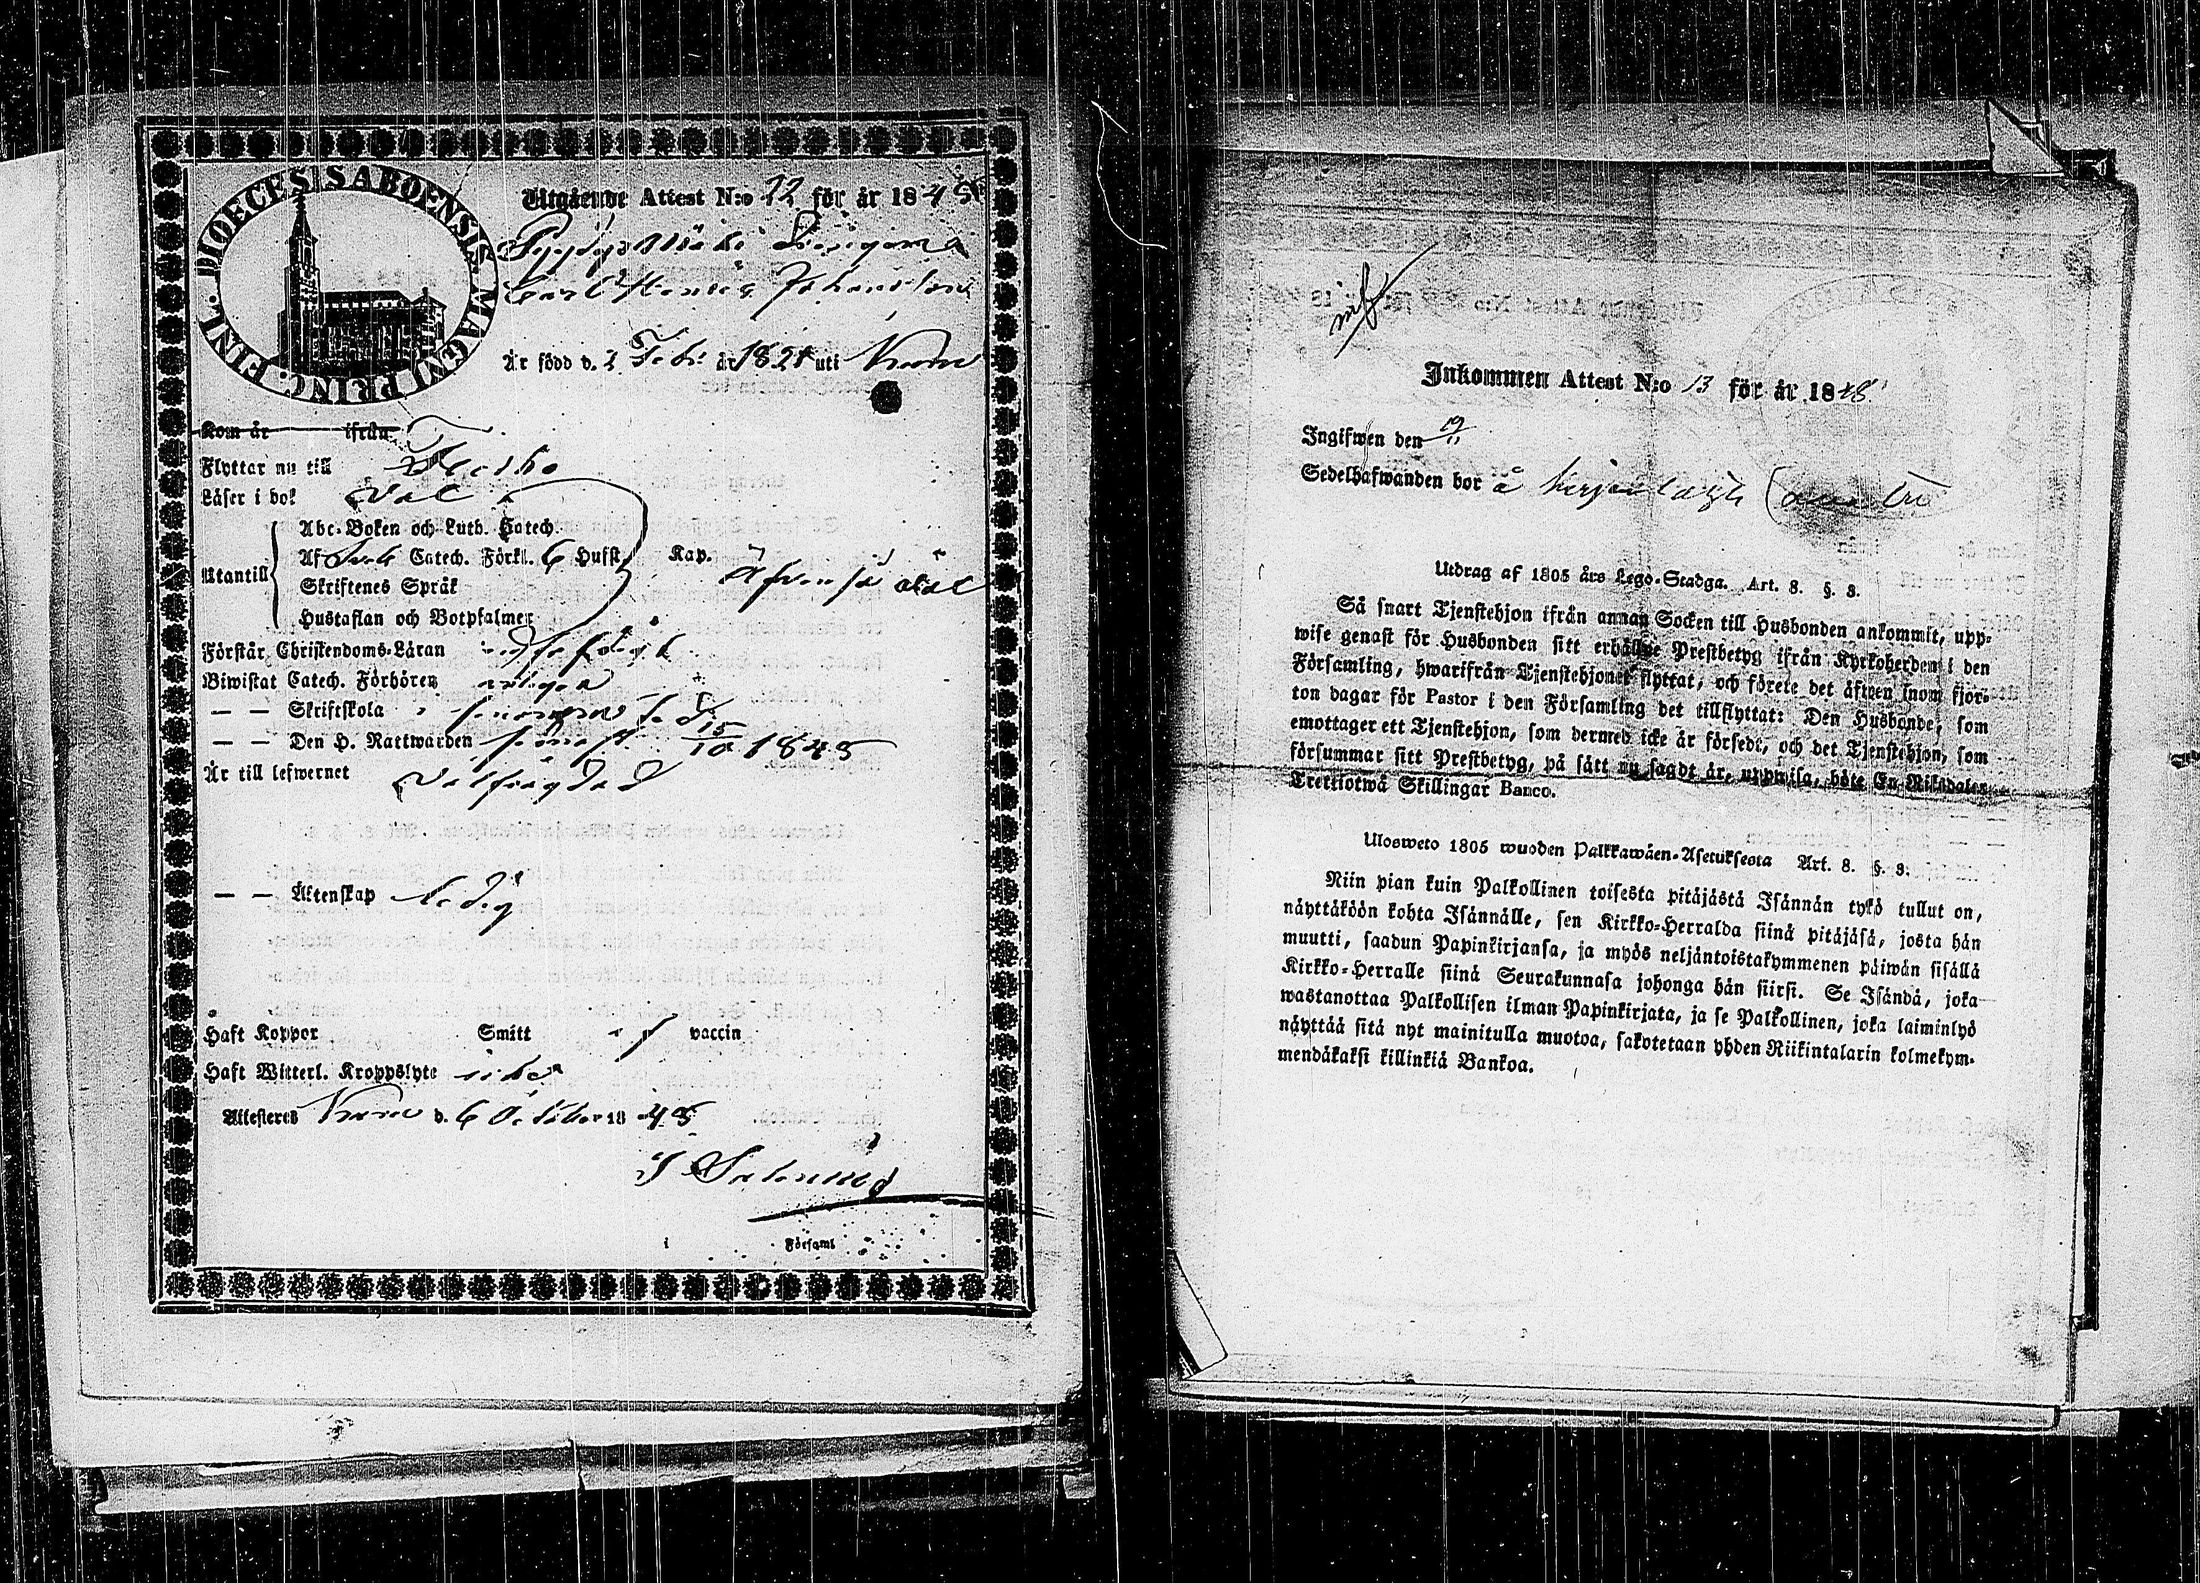 DIOECESIS ABOENSIS. MAGNI PRINC. FINL.
Utgående Attest N:o 22 för år 184
Carl Henric Johansson
Är född d. 2 Feb. år 1821 uti
Kom år ifrån
Flyttar nu till
Läser i bok väl
Utantill
Abc-Boken och Luth. Catech.
Af Catech. Förkl. 6 Hufst. Kap. äfven så väl
Skriftenes Språk
Hustaflan och Botpsalmer
Förstår Christendoms-Läran
Biwistat Catech. Förhören
— — Skriftskola
— — Den H. Nattwarden senast 15/10 184
Är till lefwernet välfrägdad
— — Äktenskap ledig
Haft Koppor Smitt af vaccin
Haft Witterl. Kroppslyte icke
Attesteras d. 6 October 184
i Församl
Inkommen Attest N:o 13 för år 1848
Ingifwen den 19/11
Sedelhafwanden bor å
Utdrag af 1805 års Lego-Stadga. Art. 8. §. 8.
Så snart Tjenstehjon ifrån annan Socken till Husbonden ankommit, upp-
wise genast för Husbonden sitt erhållne Prestbetyg ifrån Kyrkoherden i den
Församling, hwarifrån Tjenstehjonet flyttat, och förete det äfwen inom fjor-
ton dagar för Pastor i den Församling det tillflyttat: Den Husbonde, som
emottager ett Tjenstehjon, som dermed icke är försedt, och det Tjenstehjon, som
försummar sitt Prestbetyg, på sätt nu sagdt är, uppwisa, böte En Riksdaler
Trettiotwå Skillingar Banco.
Ulosweto 1805 wuoden Palkkawäen-Asetuksesta Art. 8. §. 8.
Niin pian kuin Palkollinen toisesta pitäjästä Isännän tykö tullut on,
näyttäköön kohta Isännälle, sen Kirkko-Herralda siinä pitäjäsä, josta hän
muutti, saadun Papinkirjansa, ja myös neljäntoistakymmenen päiwän sisällä
Kirkko-Herralle siinä Seurakunnasa johonga hän siirsi. Se Isändä, joka
wastanottaa Palkollisen ilman Papinkirjata, ja se Palkollinen, joka laiminlyö
näyttää sitä nyt mainitulla muotoa, sakotetaan yhden Riikintalarin kolmekym-
mendäkaksi killinkiä Bankoa.